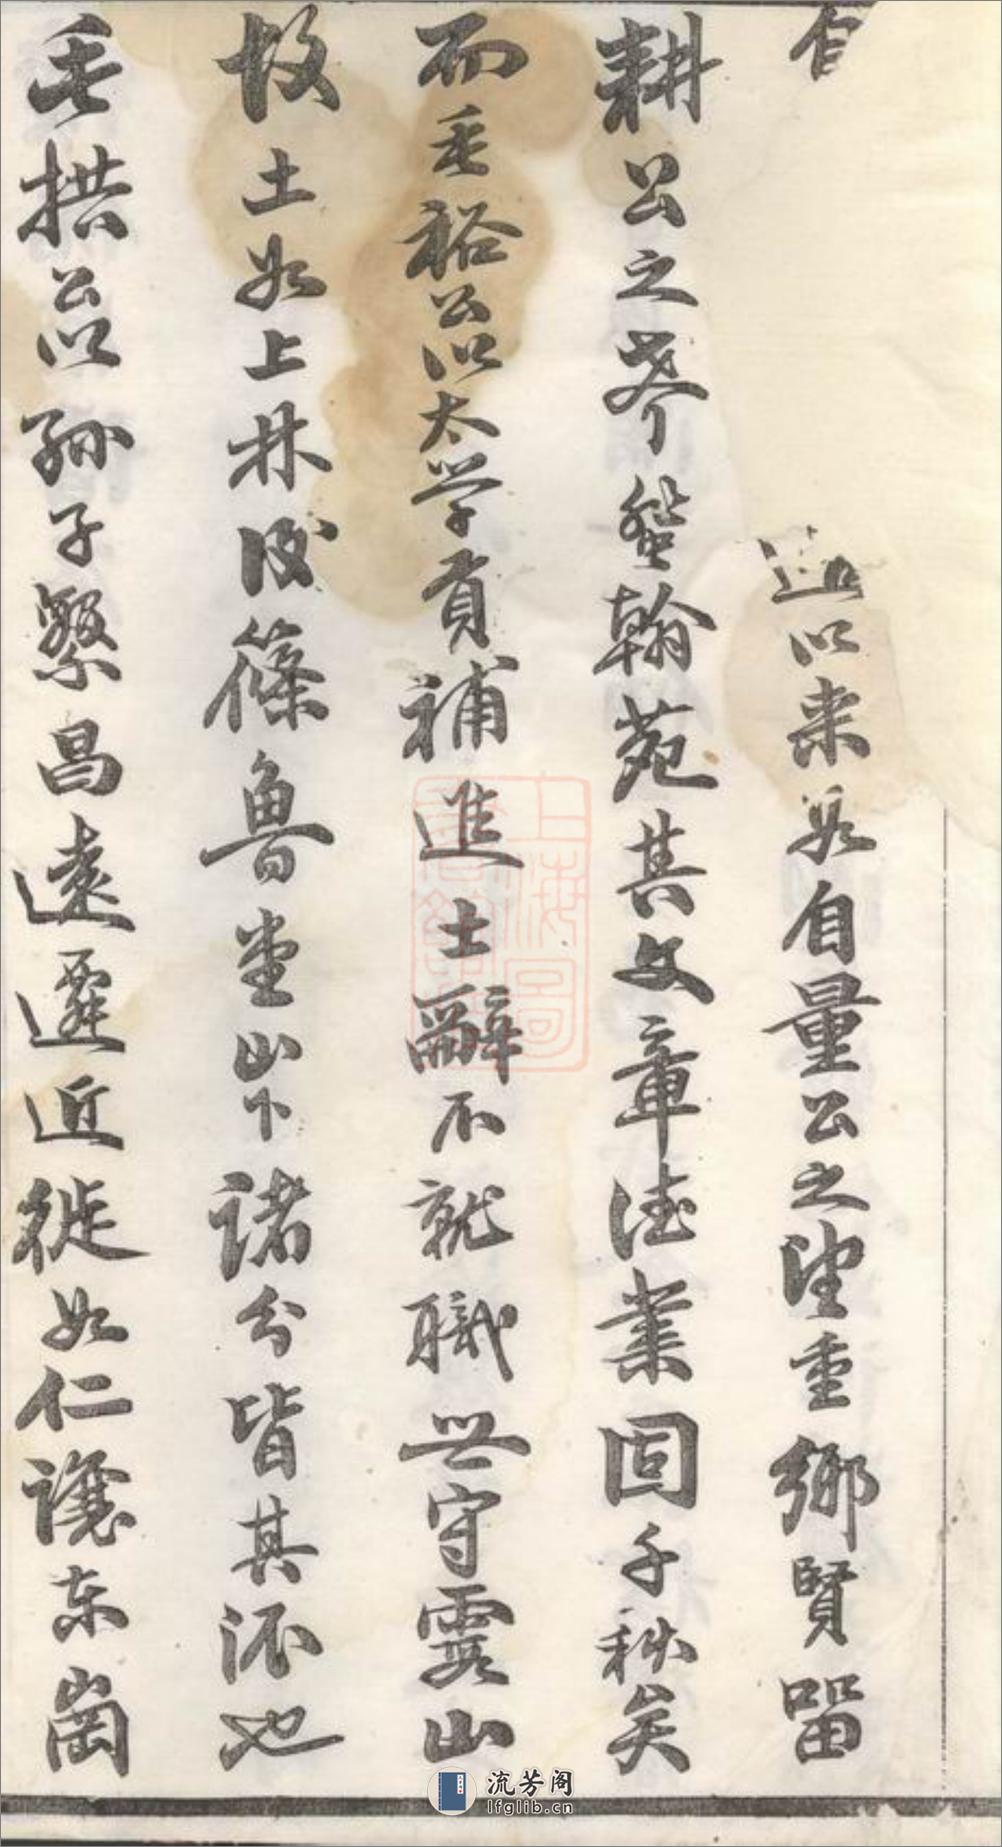 以来如自量公之望重鄉賢留
耕公之登翰苑其文章德業固千秋矣
而垂裕公以太学貢補進士辭不就職世守霞山
故土如上林後篠魯堂山下諸分皆其派也
垂拱公以孙子繁昌遠遷近徙如仁讓东崗
上海图書館藏
流芳阁
lfglib.cn